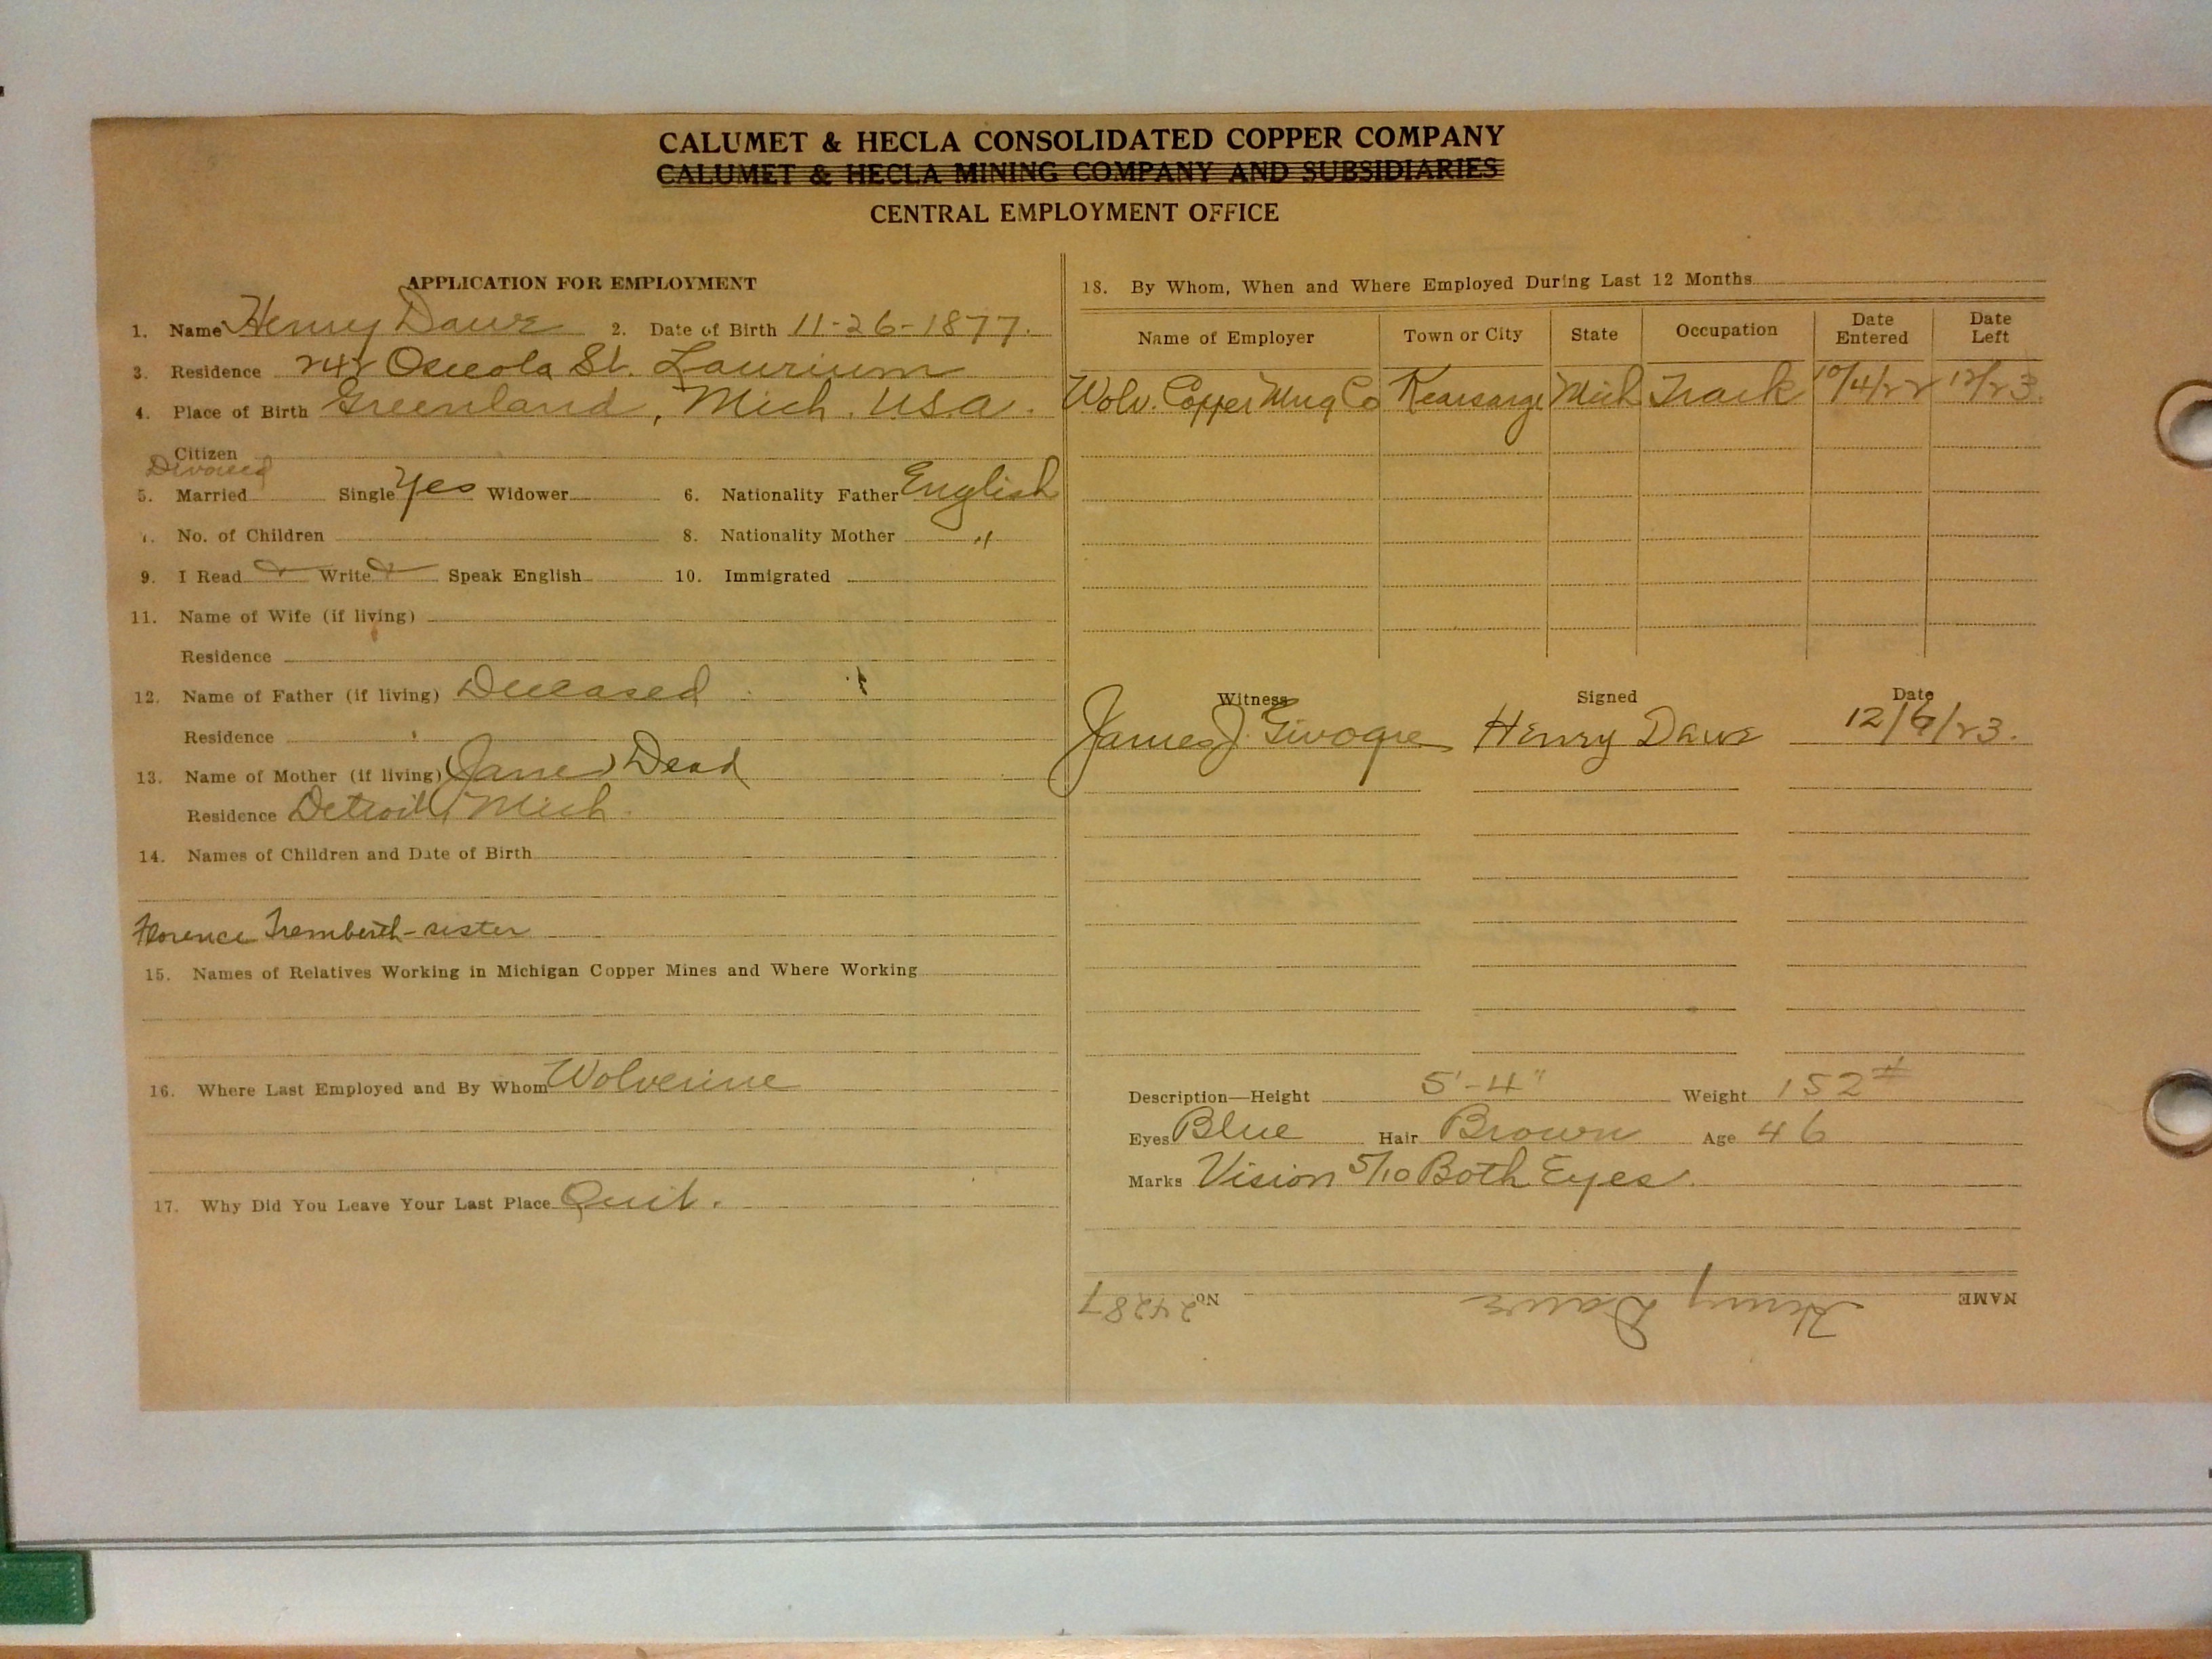 CALUMET & HECLA CONSOLIDATED COPPER COMPANY
CALUMET & HECLA MINING COMPANY AND SUBSIDIARIES
CENTRAL EMPLOYMENT OFFICE
APPLICATION FOR EMPLOYMENT
1. Name Henry Dawe 2. Date of Birth 11-26-1877.
3. Residence 242 Osceola St. Laurium
4. Place of Birth Greenland, Mich. USA.
Citizen
Divorced
5. Married Single Yes Widower 6. Nationality Father English
7. No. of Children 8. Nationality Mother "
9. I Read Write Speak English 10. Immigrated
11. Name of Wife (if living)
Residence
12. Name of Father (if living) Deceased
Residence
13. Name of Mother (if living) Jane Dead
Residence Detroit, Mich.
14. Names of Children and Date of Birth
Florence Trembeth - sister
15. Names of Relatives Working in Michigan Copper Mines and Where Working
16. Where Last Employed and By Whom Wolverine
17. Why Did You Leave Your Last Place Quit.
18. By Whom, When and Where Employed During Last 12 Months
Name of Employer Town or City State Occupation Date Entered Date Left
Wolv. Copper Mng Co Kearsarge Mich Track 10/4/22 12/23.
Witness Signed Date
James J. Henry Dawe 12/6/23.
Description—Height 5'-4" Weight 152#
Eyes Blue Hair Brown Age 46
Marks Vision 5/10 Both Eyes.
NAME Henry Dawe No. 24287